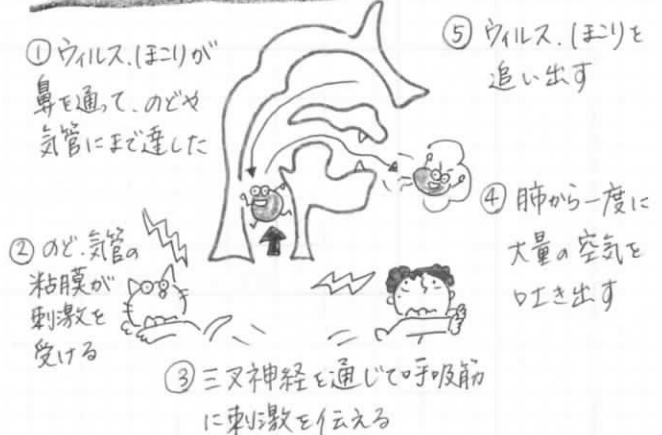 ① ウィルス、ほこりが
鼻を通って、のどや
気管にまで達した
② のど、気管の
粘膜が
刺激を
受ける
③ 三叉神経を通じて呼吸筋
に刺激を伝える
④ 肺から一度に
大量の空気を
吐き出す
⑤ ウィルス、ほこりを
追い出す